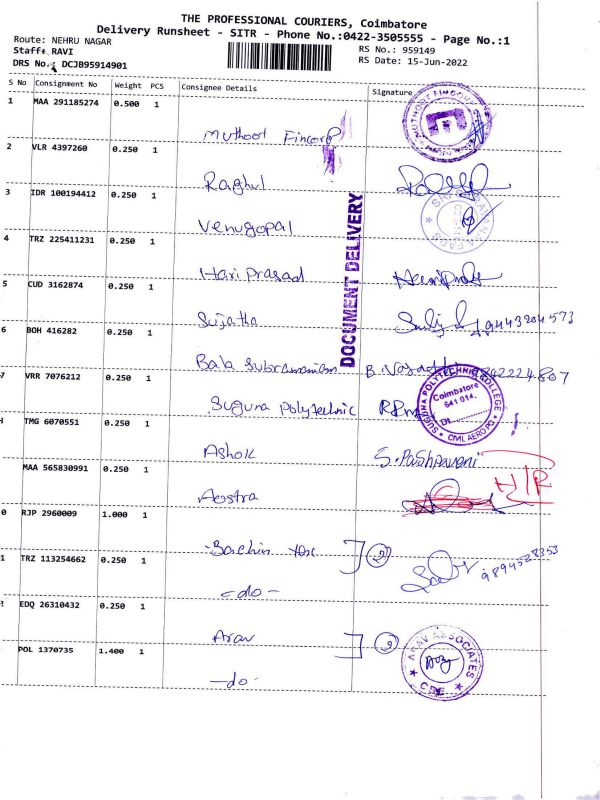 THE PROFESSIONAL COURIERS, Coimbatore
Delivery Runsheet - SITR - Phone No.:0422-3505555 - Page No.:1
Route: NEHRU NAGAR
RS No.: 959149
Staff: RAVI
RS Date: 15-Jun-2022
DRS No.: DCJB95914901
S No Consignment No Weight PCS Consignee Details Signature
1 MAA 291185274 0.500 1
Muthoot Fincorp
2 VLR 4397260 0.250 1
Raghul
3 IDR 100194412 0.250 1
Venugopal
4 TRZ 225411231 0.250 1
Hari Prasad
5 CUD 3162874 0.250 1
Sujatha
9443204573
6 BOH 416282 0.250 1
Bala Subramaniam
7 VRR 7076212 0.250 1
Suguna polytechnic
SUGUNA POLYTECHNIC COLLEGE
Coimbatore
641 014.
Dt.
CIVIL AERO PO
TMG 6070551 0.250 1
Ashok S. Pushpaveni
MAA 565830991 0.250 1
Aostra
H/R
0 RJP 2960009 1.000 1
2
1 TRZ 113254662 0.250 1
-do-
9894528353
EDQ 26310432 0.250 1
Arav
POL 1370735 1.400 1
-do-
ARAV ASSOCIATES
CBE
DOCUMENT DELIVERY